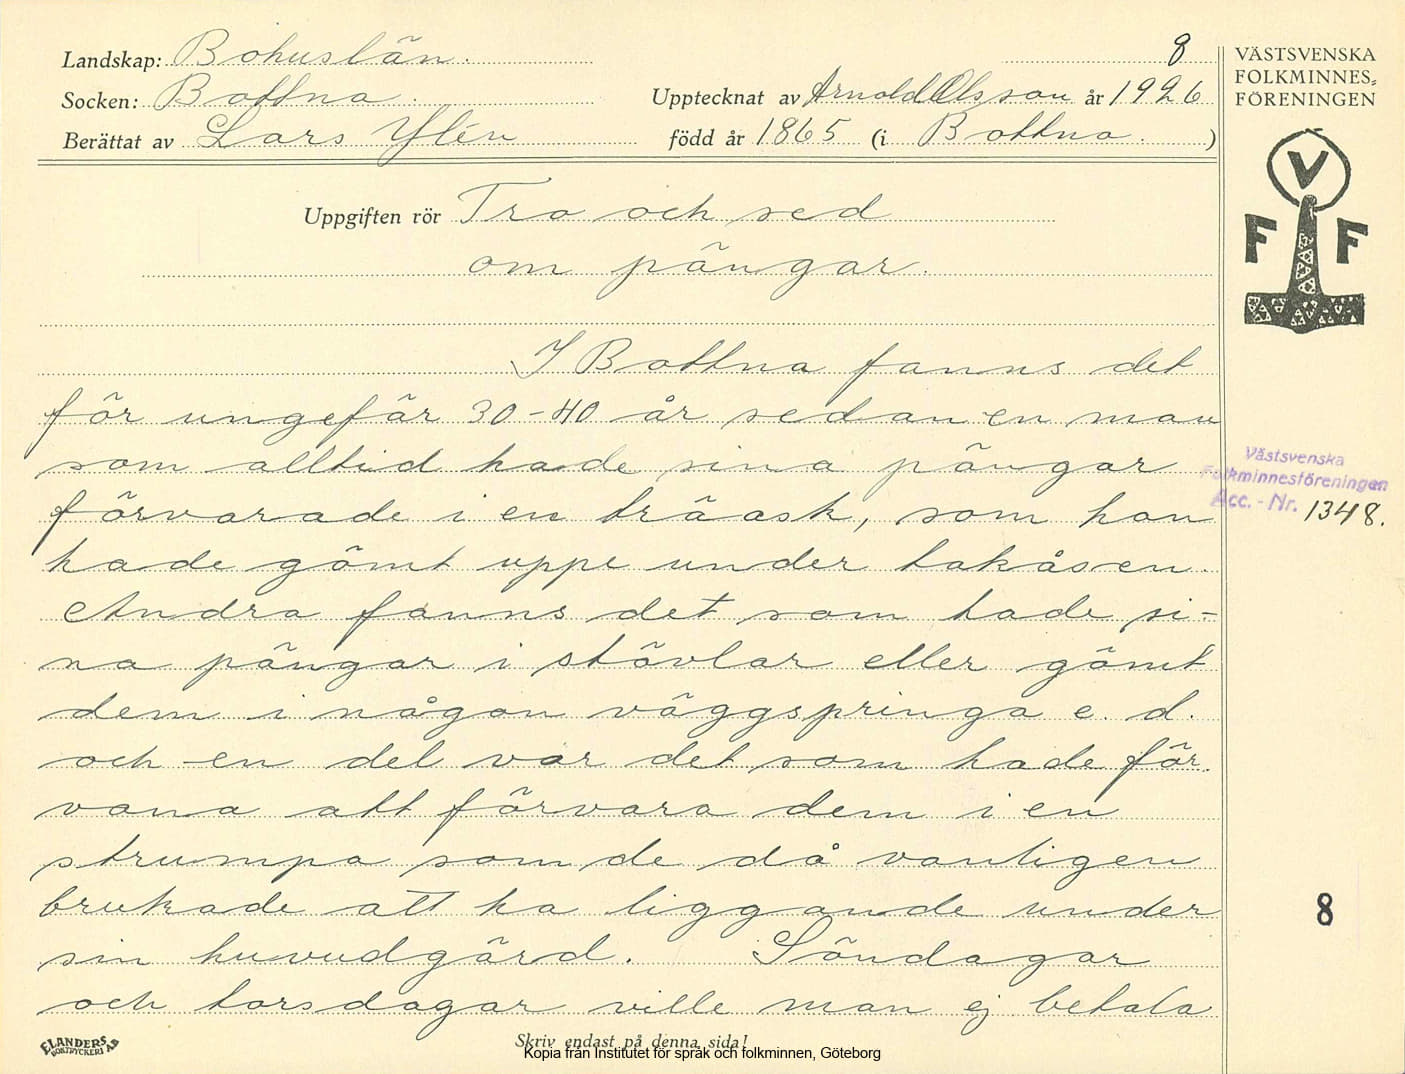 8
Landskap: Bohuslän.
Socken: Bottna.
Upptecknat av Arnold Olsson år 1926
Berättat av Lars Ylén
född år 1865 (i Bottna.)
VÄSTSVENSKA
FOLKMINNES=
FÖRENINGEN
V
F F
Uppgiften rör Tro och sed
om pängar.
I Bottna fanns det
för ungefär 30-40 år sedan en man
som alltid hade sina pängar
förvarade i en träask, som han
hade gömt uppe under takåsen.
Andra fanns det som hade si-
na pängar i stövlar eller gömt
dem i någon väggspringa e. d.
och en del var det som hade för
vana att förvara dem i en
strumpa som de då vanligen
brukade att ha liggande under
sin huvudgärd. Söndagar
och torsdagar ville man ej betala
Västsvenska
Folkminnesföreningen
Acc. - Nr. 1348.
8
ELANDERS
BOKTRYCKERI AB
Skriv endast på denna sida!
Kopia från Institutet för språk och folkminnen, Göteborg